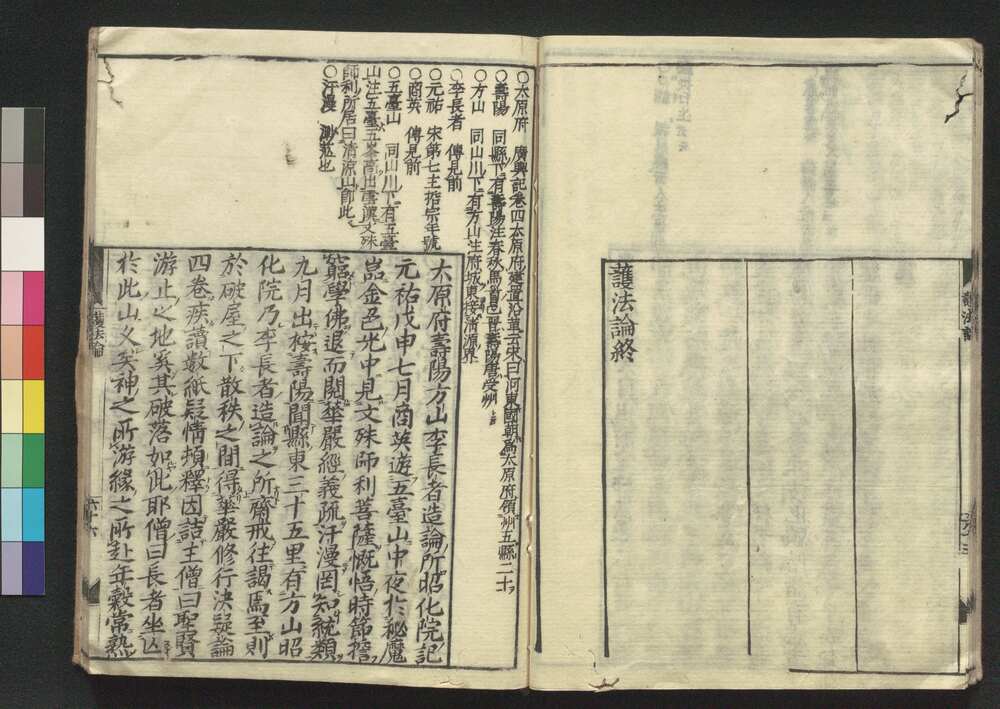 護法論終
護法論
○太原府 廣輿記卷四太原府建置沿革云宋曰河東國朝爲太原府領州五縣二十
○壽陽 同縣下有壽陽注春秋馬首邑晉壽陽唐受州
○方山 同山川下有方山注府城東接淸源界
○李長者 傳見前
○元祐 宋第七主哲宗年號
○商英 傳見前
○五臺山 同山川下有五臺
山注五臺五峯高出雲漢文殊
師利所居曰清涼山即此
○汗漫 渺茫也
太原府壽陽方山李長者造論所昭化院記
元祐戊申七月商英遊五臺山中夜於秘魔
嵓金色光中見文殊師利菩薩慨悟時節擔
窮學佛退而閱華嚴經義疏汗漫罔知統類
九月出按壽陽聞縣東三十五里有方山昭
化院乃李長者造論之所齋戒往謁焉至則
於破屋之下散秩之間得華嚴修行決疑論
四卷疾讀數紙疑情頓釋因詰主僧曰聖賢
游止之地奚其破落如此耶僧曰長者坐亡
於此山久矣神之所游緣之所赴年穀常熟
護法論
六十六